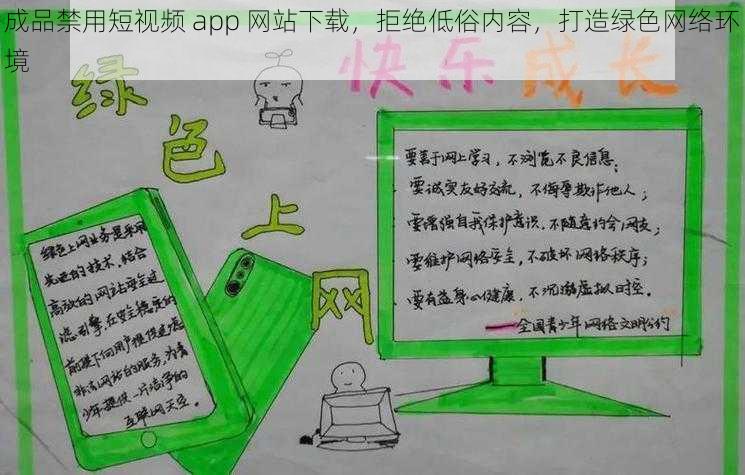 成品禁用短视频 app 网站下载，拒绝低俗内容，打造绿色网络环
境
快乐成长
绿色上网
要善于网上学习，不浏览不良信息；
要诚实友好交流，不侮辱欺诈他人；
要增强自我保护意识，不随意约会网友；
要维护网络安全，不破坏网络秩序；
要有益身心健康，不沉溺虚拟时空。
全国青少年网络文明公约
绿色上网业务是采用
先进的技术，结合
高效的网站安全过
滤引擎，在安全稳定的
前提下向用户提供过滤
非法网站的服务，为青
少年提供一片洁净的
互联网天空。